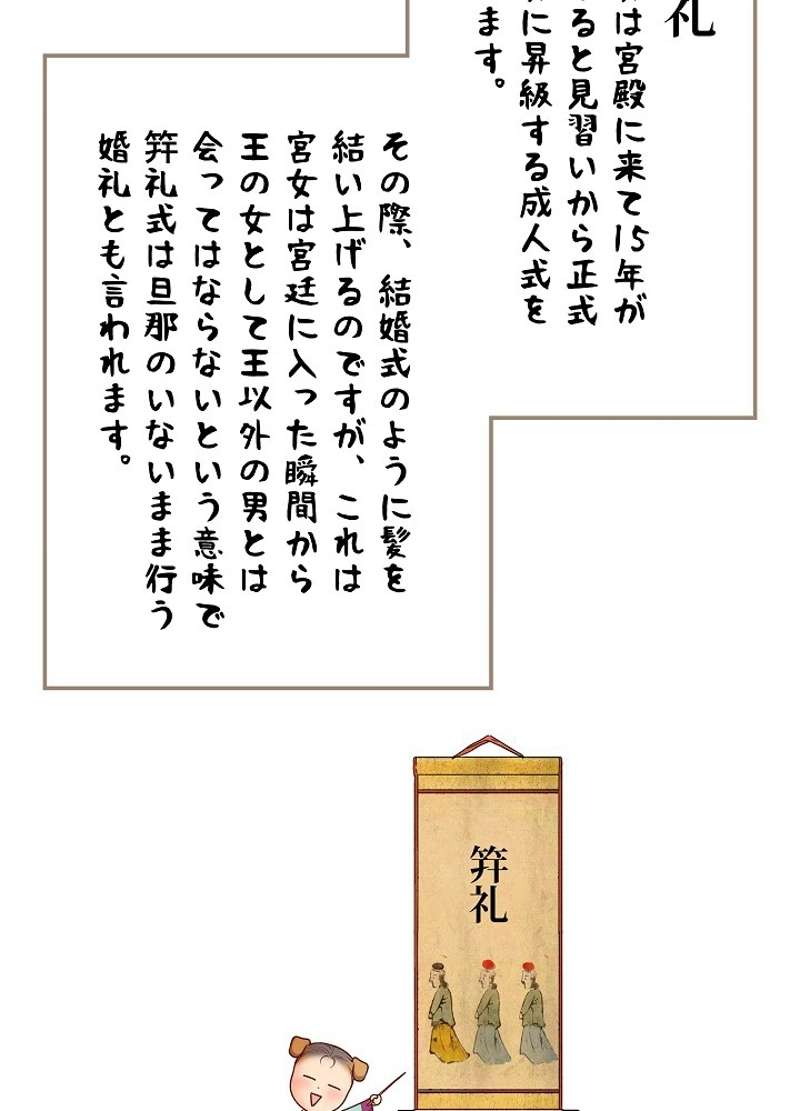 礼
は宮殿に来て15年が
ると見習いから正式
に昇級する成人式を
ます。
その際、結婚式のように髪を
結い上げるのですが、これは
宮女は宮廷に入った瞬間から
王の女として王以外の男とは
会ってはならないという意味で
笄礼式は旦那のいないまま行う
婚礼とも言われます。
笄礼